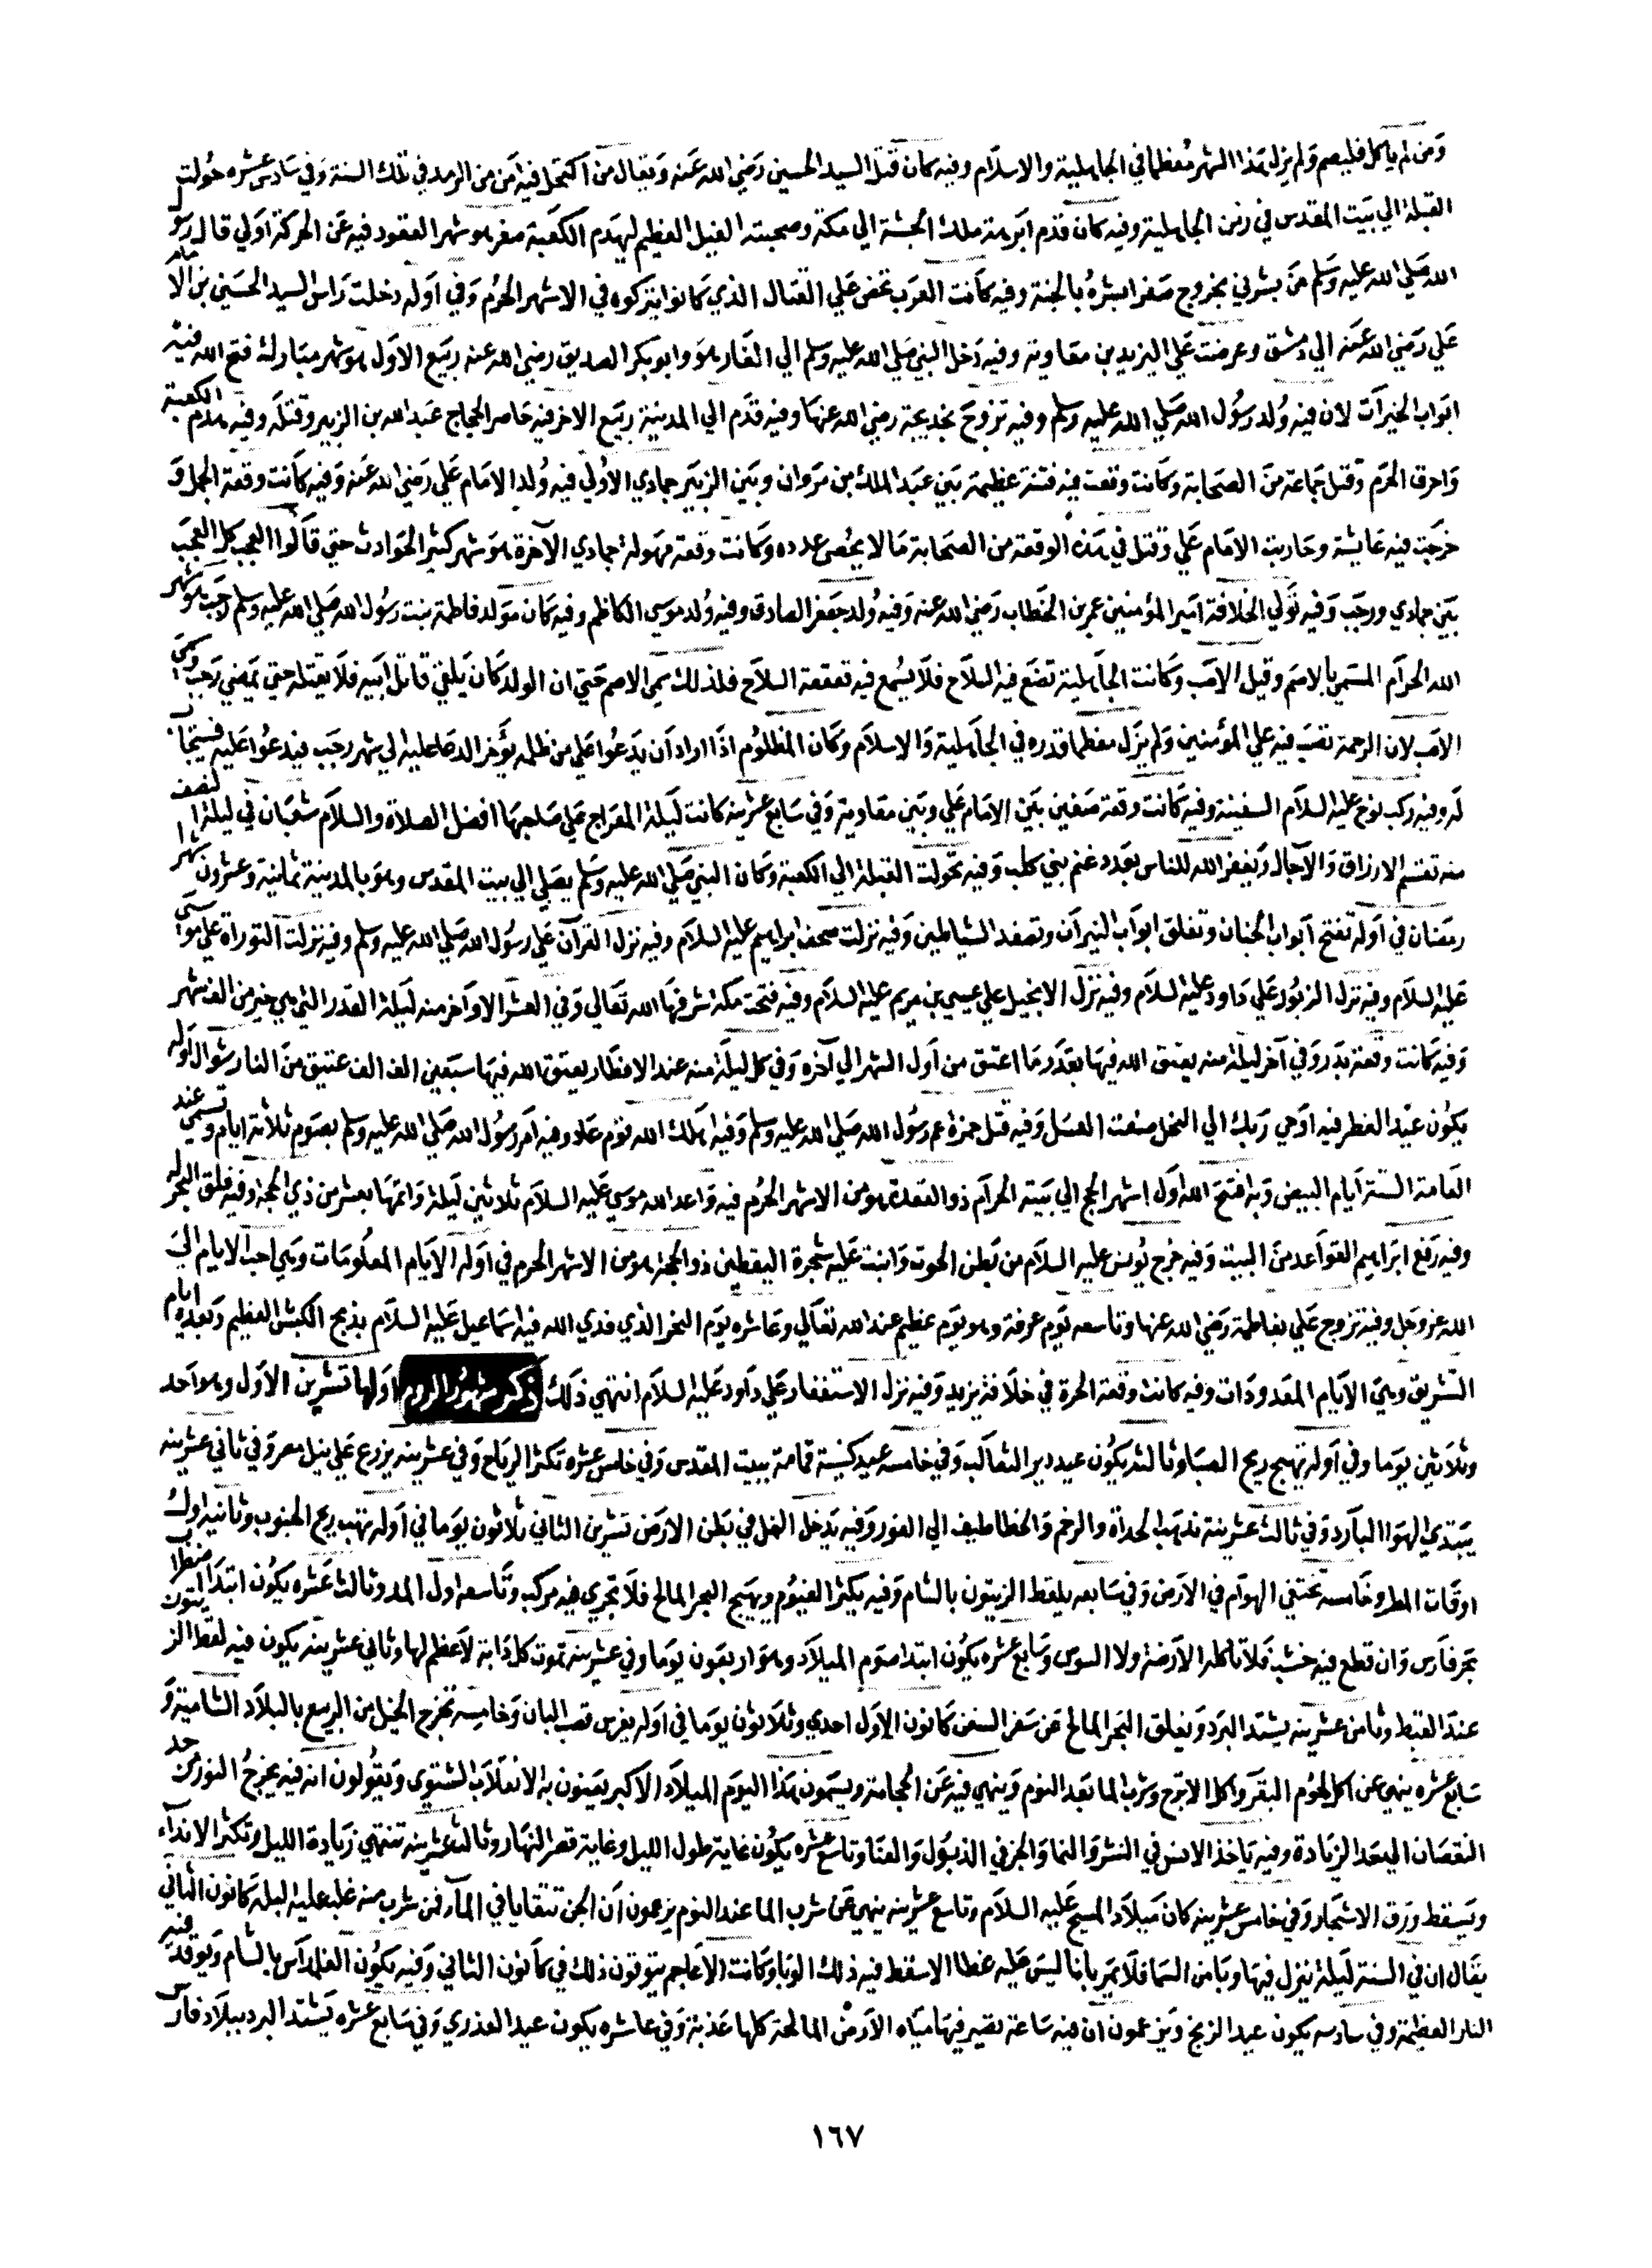 ومن لم ياكل فليصم ولم يزل هذا الشهر معظما في الجاهلية والاسلام وفيه كان قتل السيد الحسين رضي الله عنه ويقال من اكتحل فيه امن من الرمد في تلك السنة وفي سادس عشره حولت
القبلة الي بيت المقدس في زمن الجاهلية وفيه كان قدم ابرهة ملك الحبشة الي مكة وصحبته الفيل العظيم ليهدم الكعبة صفر هو شهر القعود فيه عن الحركة اولي قال رسول
الله صلي الله عليه وسلم من بشرني بخروج صفر ابشره بالجنة وفيه كانت العرب تحض علي القتال الذي كانوا يتركوه في الاشهر الحرم وفي اوله دخلت راس السيد الحسين بن الامام
علي رضي الله عنه الي دمشق وعرضت علي اليزيد بن معاوية وفيه دخل النبي صلي الله عليه وسلم الي الغار هو وابو بكر الصديق رضي الله عنه ربيع الاول هو شهر مبارك فتح الله فيه
ابواب الخيرات لان فيه ولد رسول الله صلي الله عليه وسلم وفيه تزوج بخديجة رضي الله عنها وفيه قدم الي المدينة ربيع الاخر فيه حاصر الحجاج عبد الله بن الزبير وقتله وفيه هدم الكعبة
واحرق الحرم وقتل جماعة من الصحابة وكانت وقعت فيه فتنة عظيمة بين عبد الملك بن مروان وبين الزبير جمادي الاولي فيه ولد الامام علي رضي الله عنه وفيه كانت وقعة الجمل و
خرجت فيه عايشة وحاربت الامام علي وقتل في هذه الوقعة من الصحابة ما لا يحصي عدده وكانت وقعة مهولة جمادي الآخرة هو شهر كثير الحوادث حتي قالوا العجب كل العجب
بين جمادي ورجب وفيه تولي الخلافة امير المؤمنين عمر بن الخطاب رضي الله عنه وفيه ولد جعفر الصادق وفيه ولد موسي الكاظم وفيه كان مولد فاطمة بنت رسول الله صلي الله عليه وسلم رجب هو شهر
الله الحرام المسمي بالاصم وقيل الاصب وكانت الجاهلية تضع فيه السلاح فلا يسمع فيه قعقعة السلاح فلذلك سمي الاصم حتي ان الولد كان يلقي قاتل ابيه فلا يقتله حتي يمضي رجب وسمي
الاصب لان الرحمة تصب فيه علي المؤمنين ولم يزل معظما قدره في الجاهلية والاسلام وكان المظلوم اذا اراد ان يدعوا علي من ظلمه يؤخر الدعا عليه الي شهر رجب فيدعوا عليه فيستجاب
له وفيه ركب نوح عليه السلام السفينة وفيه كانت وقعة صفين بين الامام علي وبين معاوية وفي سابع عشرينه كانت ليلة المعراج علي صاحبها افضل الصلاة والسلام شعبان في ليلة النصف
منه تقسم الارزاق والآجال ويغفر الله للناس بعدد غنم بني كلب وفيه تحولت القبلة الي الكعبة وكان النبي صلي الله عليه وسلم يصلي الي بيت المقدس وهو بالمدينة ثمانية وعشرون شهرا
رمضان في اوله تفتح ابواب الجنان وتغلق ابواب النيران وتصفد الشياطين وفيه نزلت صحف ابراهيم عليه السلام وفيه نزل القرآن علي رسول الله صلي الله عليه وسلم وفيه نزلت التوراة علي موسي
عليه السلام وفيه نزل الزبور علي داود عليه السلام وفيه نزل الانجيل علي عيسي بن مريم عليه السلام وفيه فتحت مكة شرفها الله تعالي وفي العشر الاواخر منه ليلة القدر التي هي خير من الف شهر
وفيه كانت وقعة بدر وفي آخر ليلة منه يعتق الله فيها بقدر ما اعتق من اول الشهر الي آخره وفي كل ليلة منه عند الافطار يعتق الله فيها سبعين الف الف عتيق من النار شوال اوله
يكون عيد الفطر فيه اوحي ربك الي النحل صنعت العسل وفيه قتل حمزة عم رسول الله صلي الله عليه وسلم وفيه اهلك الله قوم عاد وفيه امر رسول الله صلي الله عليه وسلم بصوم ثلاثة ايام وتسمي عند
العامة الستة ايام البيض وبه افتتح الله اول اشهر الحج الي بيته الحرام ذو القعدة هو من الاشهر الحرم فيه واعد الله موسي عليه السلام ثلاثين ليلة واتمها بعشر من ذي الحجة وفيه فلق البحر له
وفيه رفع ابراهيم القواعد من البيت وفيه خرج يونس عليه السلام من بطن الحوت وانبت عليه شجرة اليقطين ذو الحجة هو من الاشهر الحرم في اوله الايام المعلومات وهي احب الايام الي
الله عز وجل وفيه تزوج علي بفاطمة رضي الله عنها وتاسعه يوم عرفة وهو يوم عظيم عند الله تعالي وعاشره يوم النحر الذي فدي الله فيه اسماعيل عليه السلام بذبح الكبش العظيم وبعده ايام
التشريق وهي الايام المعدودات وفيه كانت وقعة الحرة في خلافة يزيد وفيه نزل الاستغفار علي داود عليه السلام انتهي ذلك ذكر شهور الروم اولها تشرين الاول وهو احد
وثلاثين يوما وفي اوله تهيج ريح الصبا وثالثه يكون عيد دير الثعالب وفي خامسه عيد كنيسة قمامة ببيت المقدس وفي خامس عشره تكثر الرياح وفي عشرينه يزرع علي نيل مصر وفي ثاني عشرينه
يبتدي الهوا البارد وفي ثالث عشرينه تذهب الحداة والرخم والخطاطيف الي الغور وفيه يدخل النمل في بطن الارض تشرين الثاني ثلاثون يوما في اوله تهب ريح الجنوب وثانيه اول
اوقات المطر وخامسه تختفي الهوام في الارض وفي سابعه يلقط الزيتون بالشام وفيه يكثر الغيوم ويهيج البحر المالح فلا تجري فيه مركب وتاسعه اول المد وثالث عشره يكون ابتدا اضطراب
بحر فارس وان قطع فيه خشب فلا تاكله الارضة ولا السوس وسابع عشره يكون ابتدا صوم الميلاد وهو اربعون يوما وفي عشرينه تموت كل دابة لا عظم لها وثاني عشرينه يكون فيه لقط الزيتون
عند القبط وثامن عشرينه يشتد البرد ويغلق البحر المالح عن سفر السفن كانون الاول احدي وثلاثون يوما في اوله يغرس قصب البان وخامسه تخرج الخيل من الربيع بالبلاد الشامية و
سابع عشره ينهي عن اكل لحوم البقر واكل الاترج وشرب الما بعد النوم وينهي فيه عن الحجامة ويسمون هذا اليوم الميلاد الاكبر يعنون به الانقلاب الشتوي ويقولون انه فيه يخرج النور من حد
النقصان الي حد الزيادة وفيه ياخذ الانس في النشو والنما والجن في الذبول والفنا وتاسع عشره يكون غاية طول الليل وغاية قصر النهار وثالث عشرينه تنتهي زيادة الليل وتكثر الانداء
ويسقط ورق الاشجار وفي خامس عشرينه كان ميلاد المسيح عليه السلام وتاسع عشرينه ينهي عن شرب الما عند النوم يزعمون ان الجن تتقايا في المآء فمن شرب منه غلب عليه البله كانون الثاني
يقال ان في السنة ليلة ينزل فيها وبا من السما فلا يمر بانا ليس عليه غطا الا سقط فيه ذلك الوبا وكانت الاعاجم يتوقون ذلك في كانون الثاني وفيه يكون القلداس بالشام ويوقد فيه
النار العظيمة وفي سادسه يكون عيد الزبح ويزعمون ان فيه ساعة تصير فيها مياه الارض المالحة كلها عذبة وفي عاشره يكون عيد العذري وفي سابع عشره يشتد البرد ببلاد فارس
١٦٧